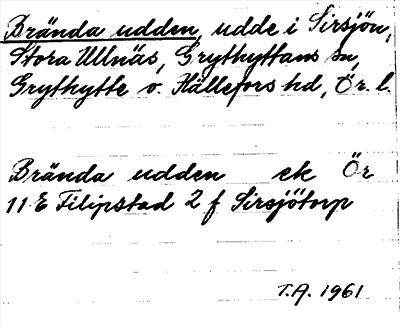 Brända udden, udde i Sirsjön,
Stora Ullnäs, Grythyttans sn,
Grythytte o. Hällefors hd, Ör. l.
Brända udden ek Ör
11 E Filipstad 2 f Sirsjötorp
T.A. 1961